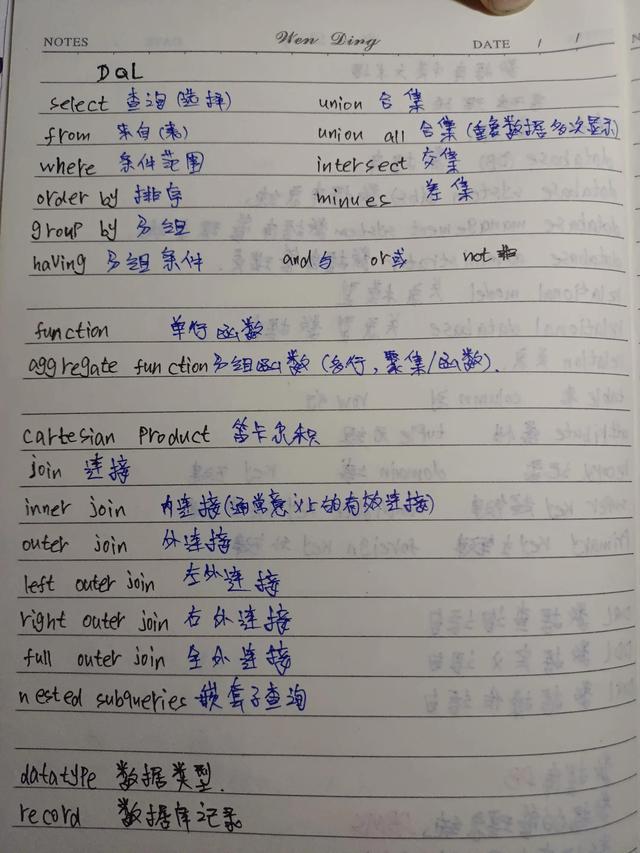 NOTES Wen Ding DATE / /
DQL
select 查询(选择) union 合集
from 来自(表) union all 合集(重复数据多次显示)
where 条件范围 intersect 交集
order by 排序 minues 差集
group by 分组
having 分组条件 and 与 or 或 not 非
function 单行函数
aggregate function 分组函数(多行,聚集/函数).
cartesian product 笛卡尔积
join 连接
inner join 内连接(通常意义上的有效连接)
outer join 外连接
left outer join 左外连接
right outer join 右外连接
full outer join 全外连接
nested subqueries 嵌套子查询
datatype 数据类型.
record 数据库记录